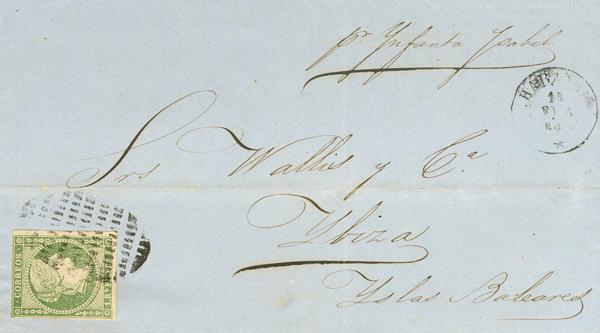 pr. Ynfanta Ysabel
HABANA
15
Srs Wallis y Ca
Ybiza
Yslas Baleares
CORREOS